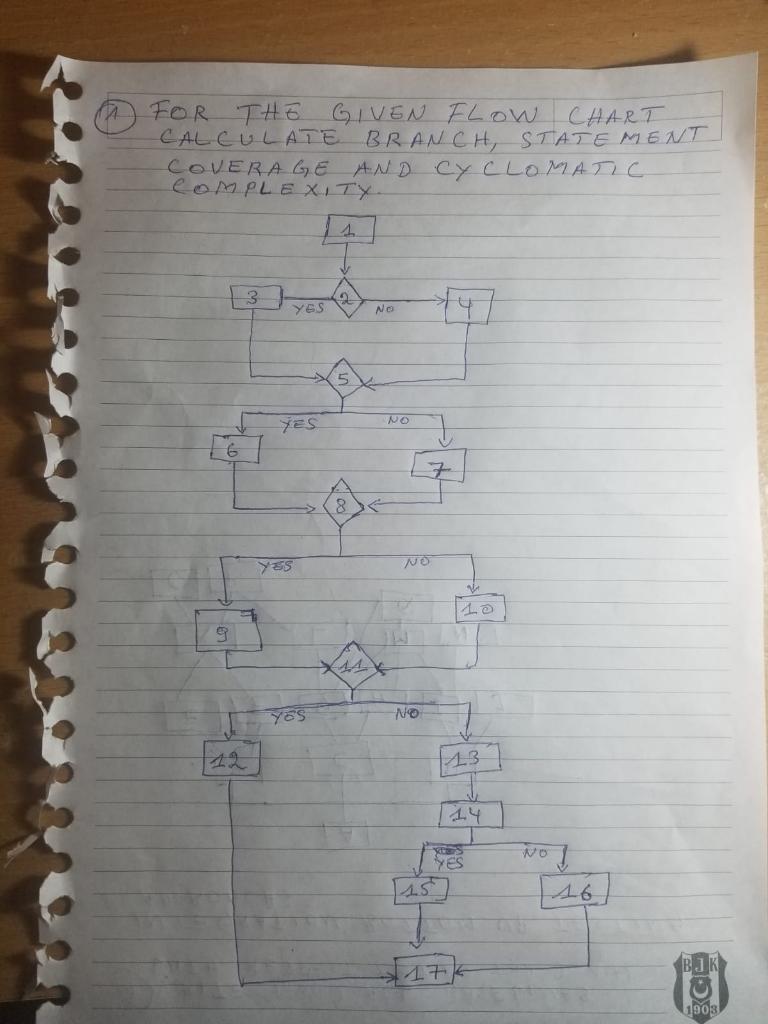 1 FOR THE GIVEN FLOW CHART
CALCULATE BRANCH, STATEMENT
COVERAGE AND CYCLOMATIC
COMPLEXITY.
1
3 YES 2 NO 4
5
YES NO
6 7
8
YES NO
9 10
11
YES NO
12 13
14
YES NO
15 16
17
BJK
1903